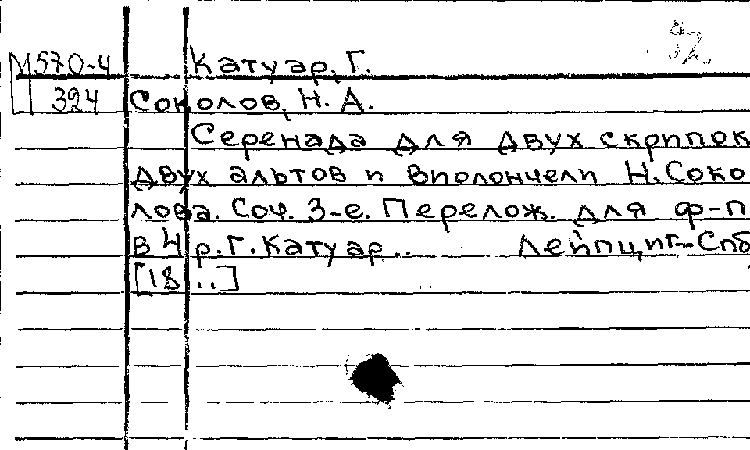 М570-4 Катуар, Г.
324 Соколов, Н. А.
Серенада для двух скрипок
двух альтов и виолончели Н. Соко
лова. Соч. 3-е. Перелож. для ф-п
в 4 р. Г. Катуар.. Лейпциг-Спб
[18..]